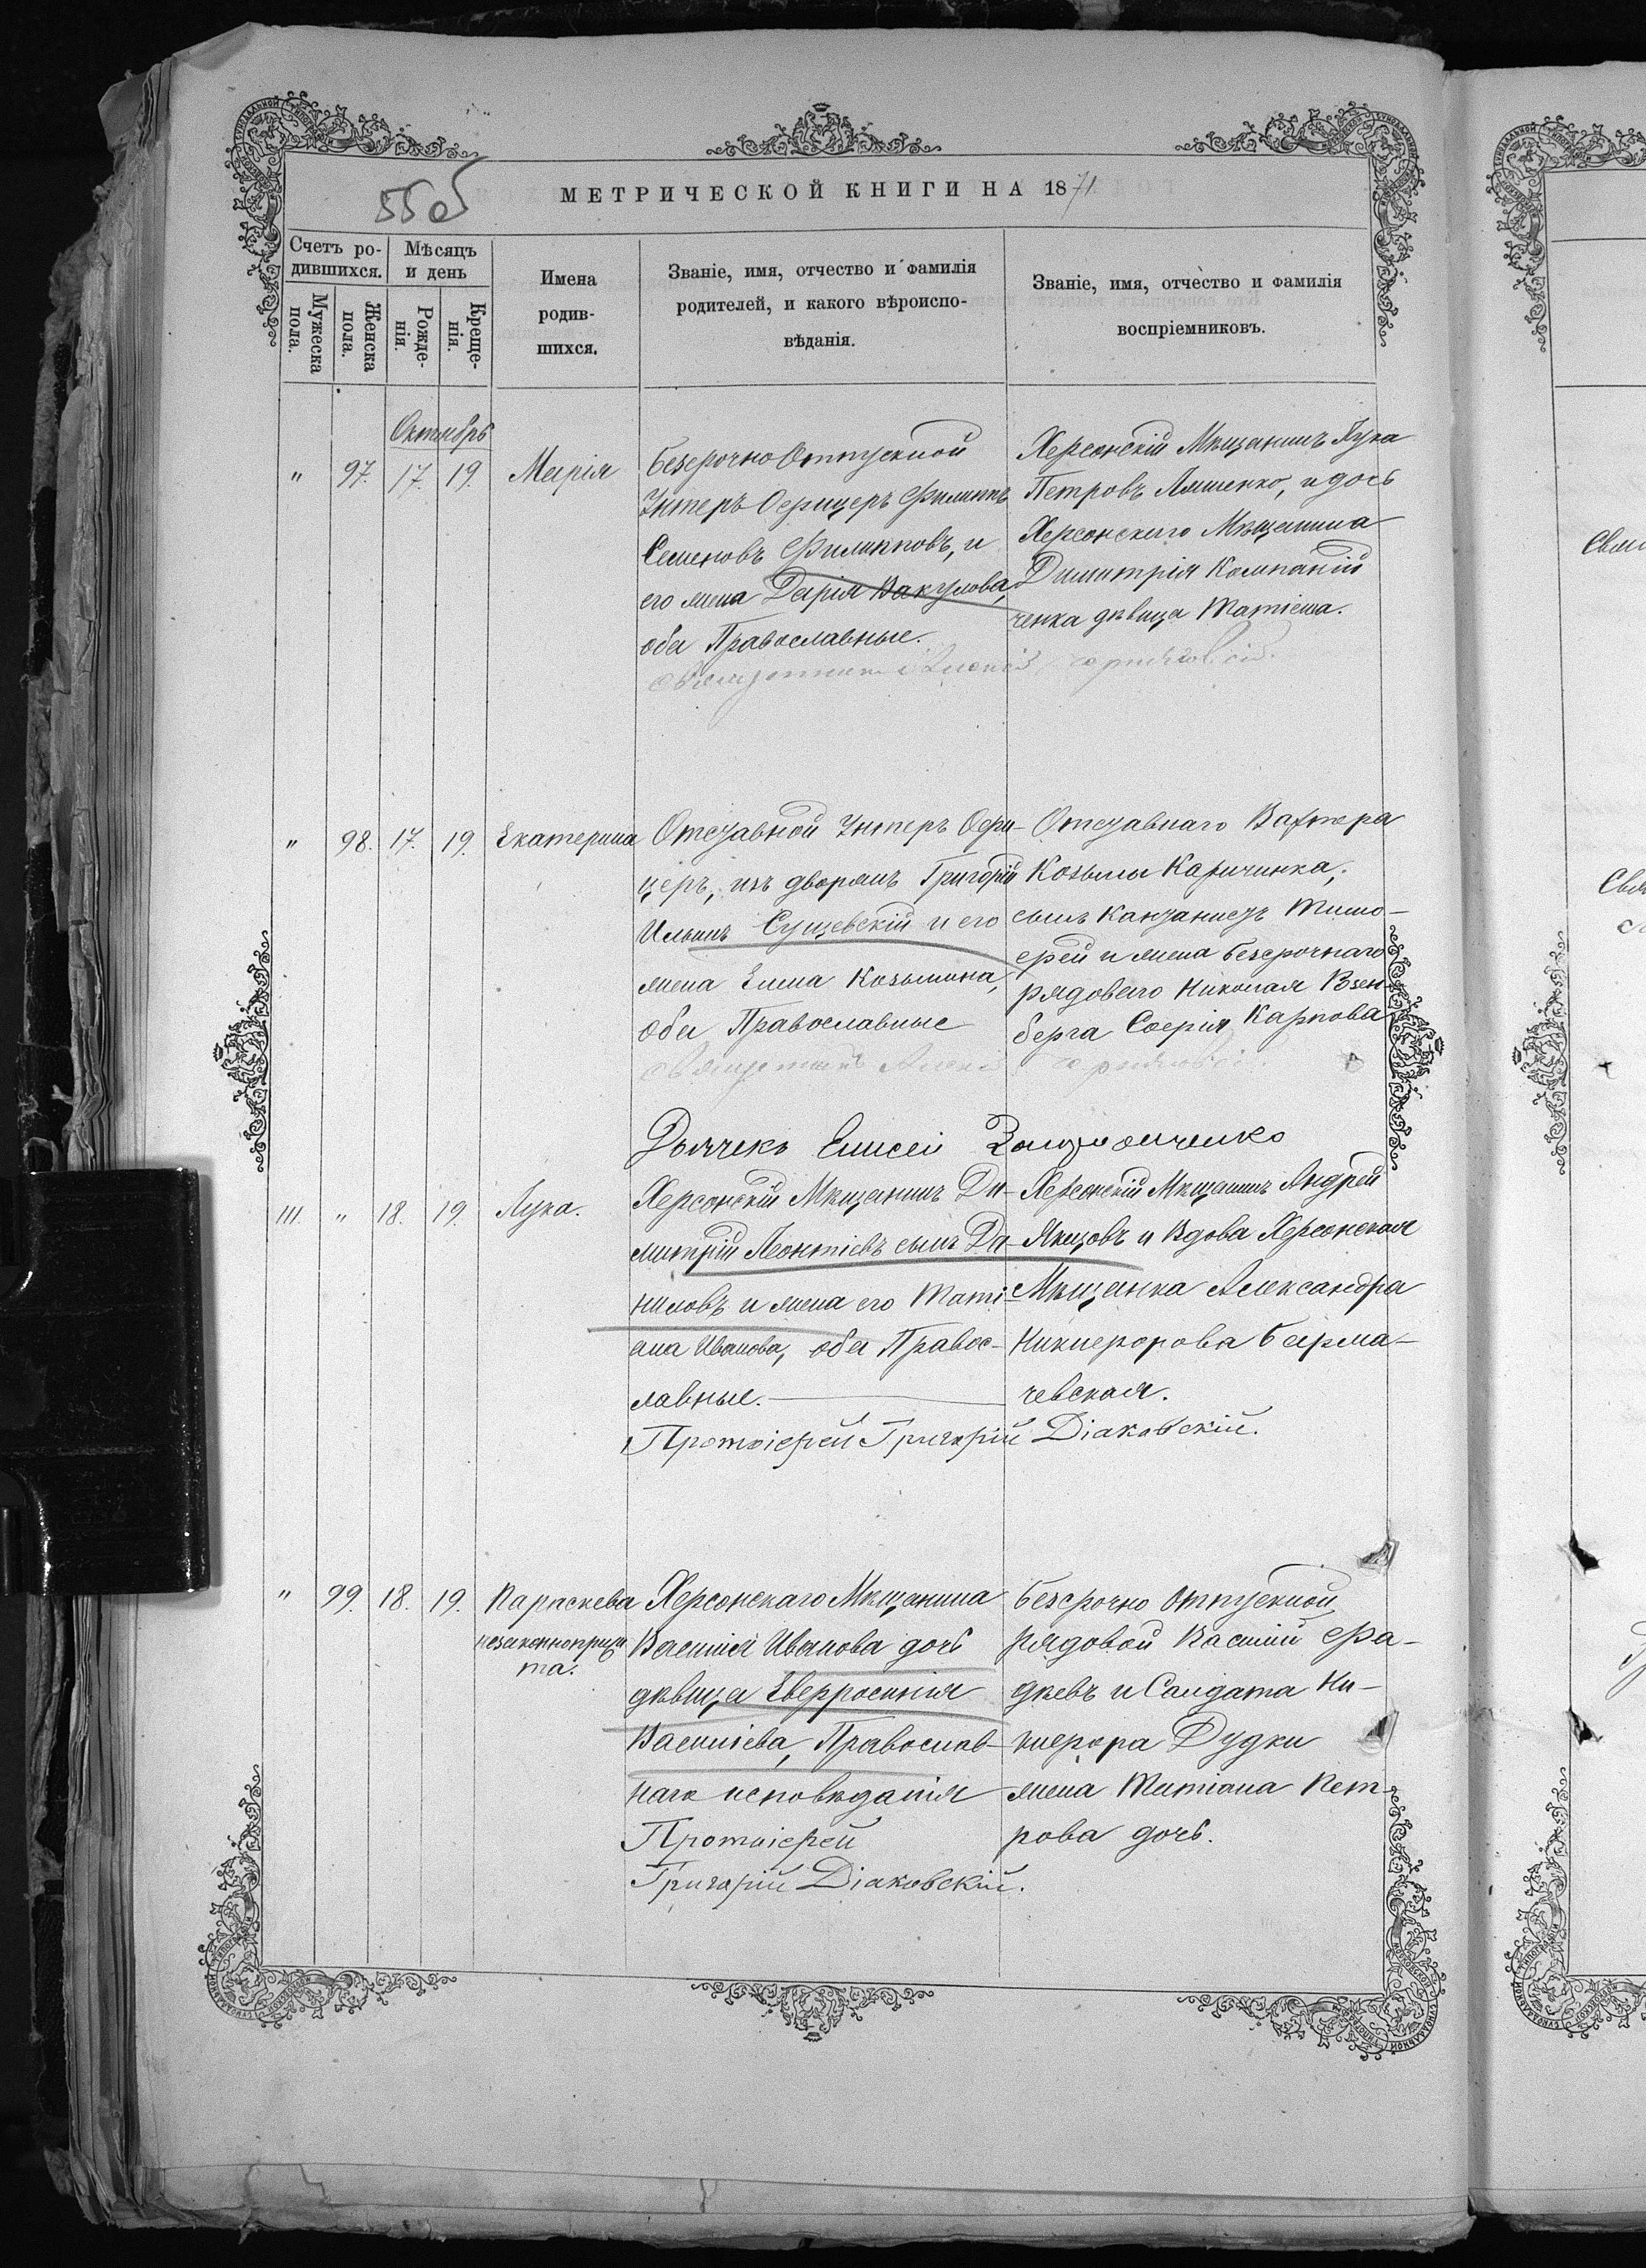 МЕТРИЧЕСКОЙ КНИГИ НА 1871
Счетъ ро-
дившихся.
Мѣсяцъ
и день
Мужеска
пола.
Женска
пола.
Рожде-
нія.
Креще-
нія.
Имена
родив-
шихся.
Званіе, имя, отчество и фамилія
родителей, и какого вѣроиспо-
вѣданія.
Званіе, имя, отчество и фамилія
воспріемниковъ.
Октябрь
" 97. 17. 19. Марія
Безсрочно Отпускной
Унтеръ Офицеръ Филиппъ
Семеновъ Филипповъ, и
его жена Дарія Вакулова,
оба Православные.
Херсонскій Мѣщанинъ Лука
Петровъ Ляшенко, и дочь
Херсонскаго Мѣщанина
Димитрія Компаній
ченка дѣвица Татіана.
" 98. 17. 19. Екатерина
Отставной Унтеръ Офи-
церъ, изъ дворянъ Григорій
Ильинъ Сущевскій и его
жена Елена Козьмина,
оба Православные
Отставнаго Вахтера
Козьмы Каричинка,
сынъ Канданистъ Тимо-
фей и жена безсрочнаго
рядоваго Николая Взен-
берга Софія Карпова
Дьячекъ Елисей
111. " 18. 19. Лука.
Херсонскій Мѣщанинъ Ди-
митрій Леонтіевъ сынъ Да-
ниловъ и жена его Тати-
ана Иванова, оба Правос-
лавные.
Херсонскій Мѣщанинъ Андрей
Якцовъ и Вдова Херсонская
Мѣщанка Александра
Никифорова Барма-
чевская.
Протоіерей Григорій Діаковскій.
" 99. 18. 19. Параскева
незаконноприжи
та.
Херсонскаго Мѣщанина
Василія Иванова дочь
дѣвица Евфросинія
Василіева, Православ-
наго исповѣданія
Протоіерей
Григорій Діаковскій.
Безсрочно Отпускной
рядовой Василій Фа-
дѣевъ и Салдата Ни-
кифора Дудки
жена Татіана Пет-
рова дочь.